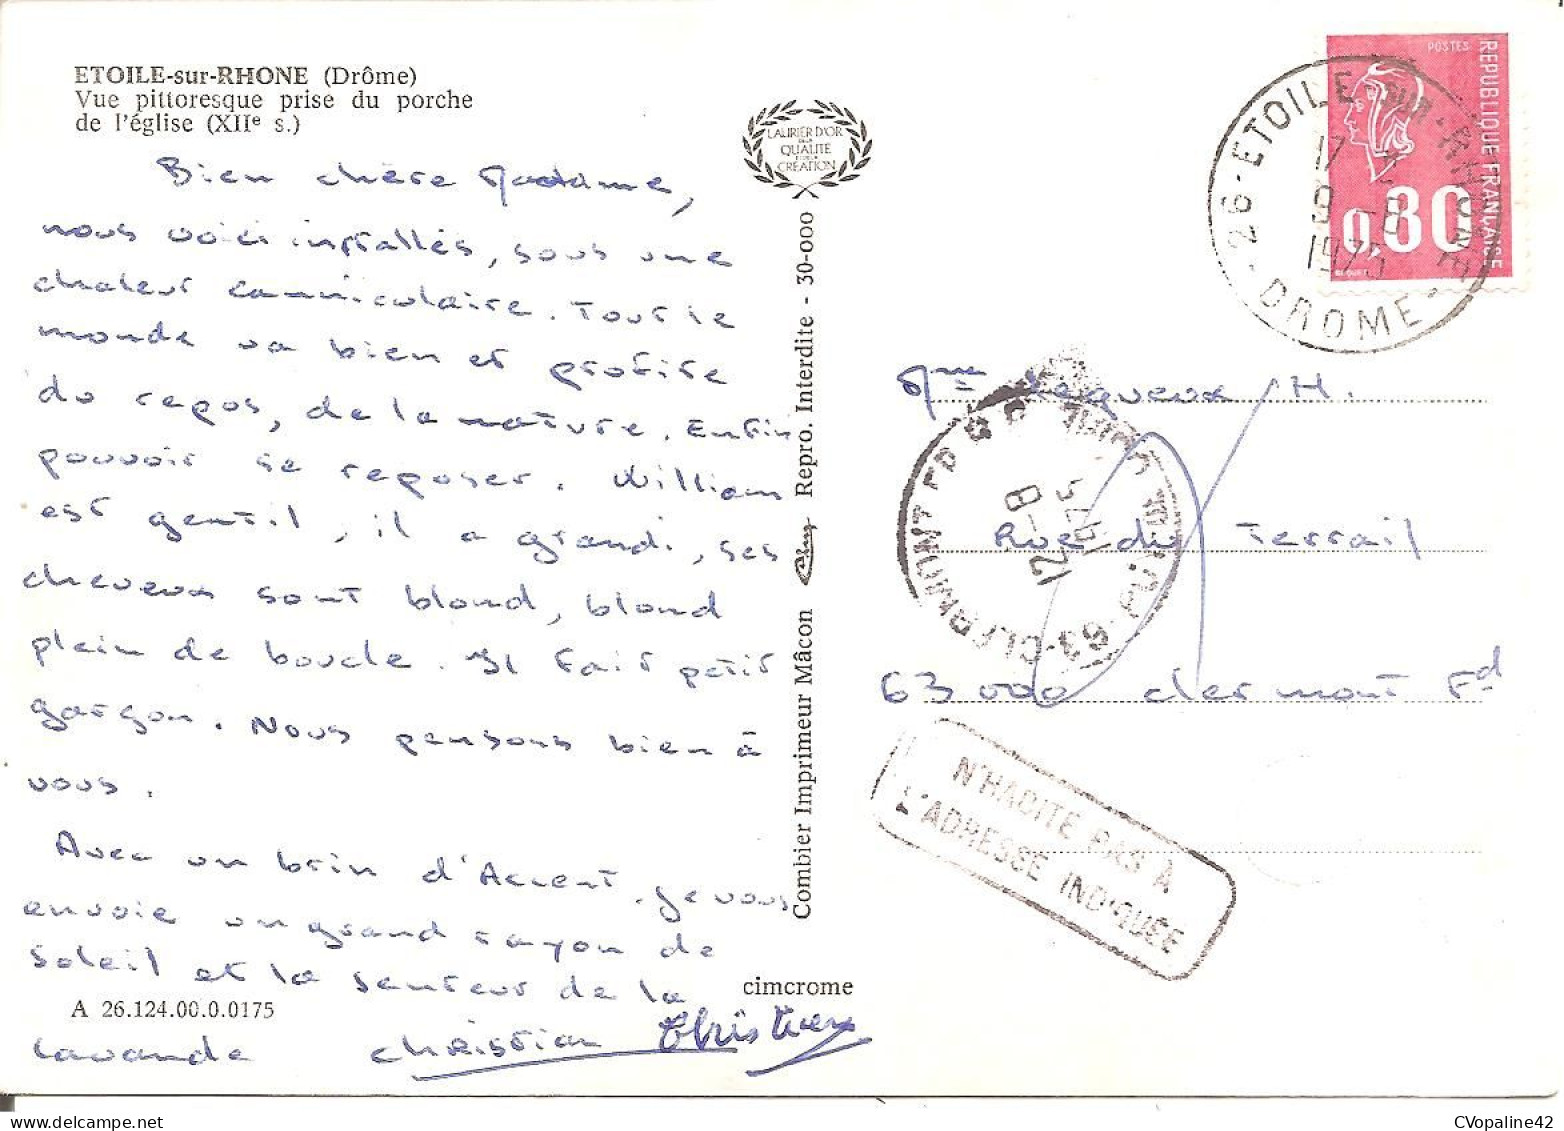 ETOILE-sur-RHONE (Drôme)
Vue pittoresque prise du porche
de l'église (XIIe s.)
Bien chère Madame,
nous voici installés, sous une
chaleur canniculaire. Tout le
monde va bien et profite
du repos, de la nature. Enfin
pouvoir se reposer. William
est gentil, il a grandi, ses
cheveux sont blond, blond
plein de boucle. Il fait petit
garçon. Nous pensons bien à
vous.
Avec un brin d'Accent, je vous
envoie un grand rayon de
soleil et la senteur de la
lavande Christian
A 26.124.00.0.0175
cimcrome
LAURIER D'OR
DE LA
QUALITÉ
ET DE LA
CRÉATION
Combier Imprimeur Mâcon
Repro. Interdite - 30-000
POSTES
REPUBLIQUE FRANÇAISE
0,80
26-ETOILE-SUR-RHONE
17
9 -8
1975
DROME
Mme H.
Rue du Terrail
63000 Clermont Fd
63-CLERMONT FD
12 -8
1975
N'HABITE PAS À
L'ADRESSE INDIQUÉE
CVopaline42